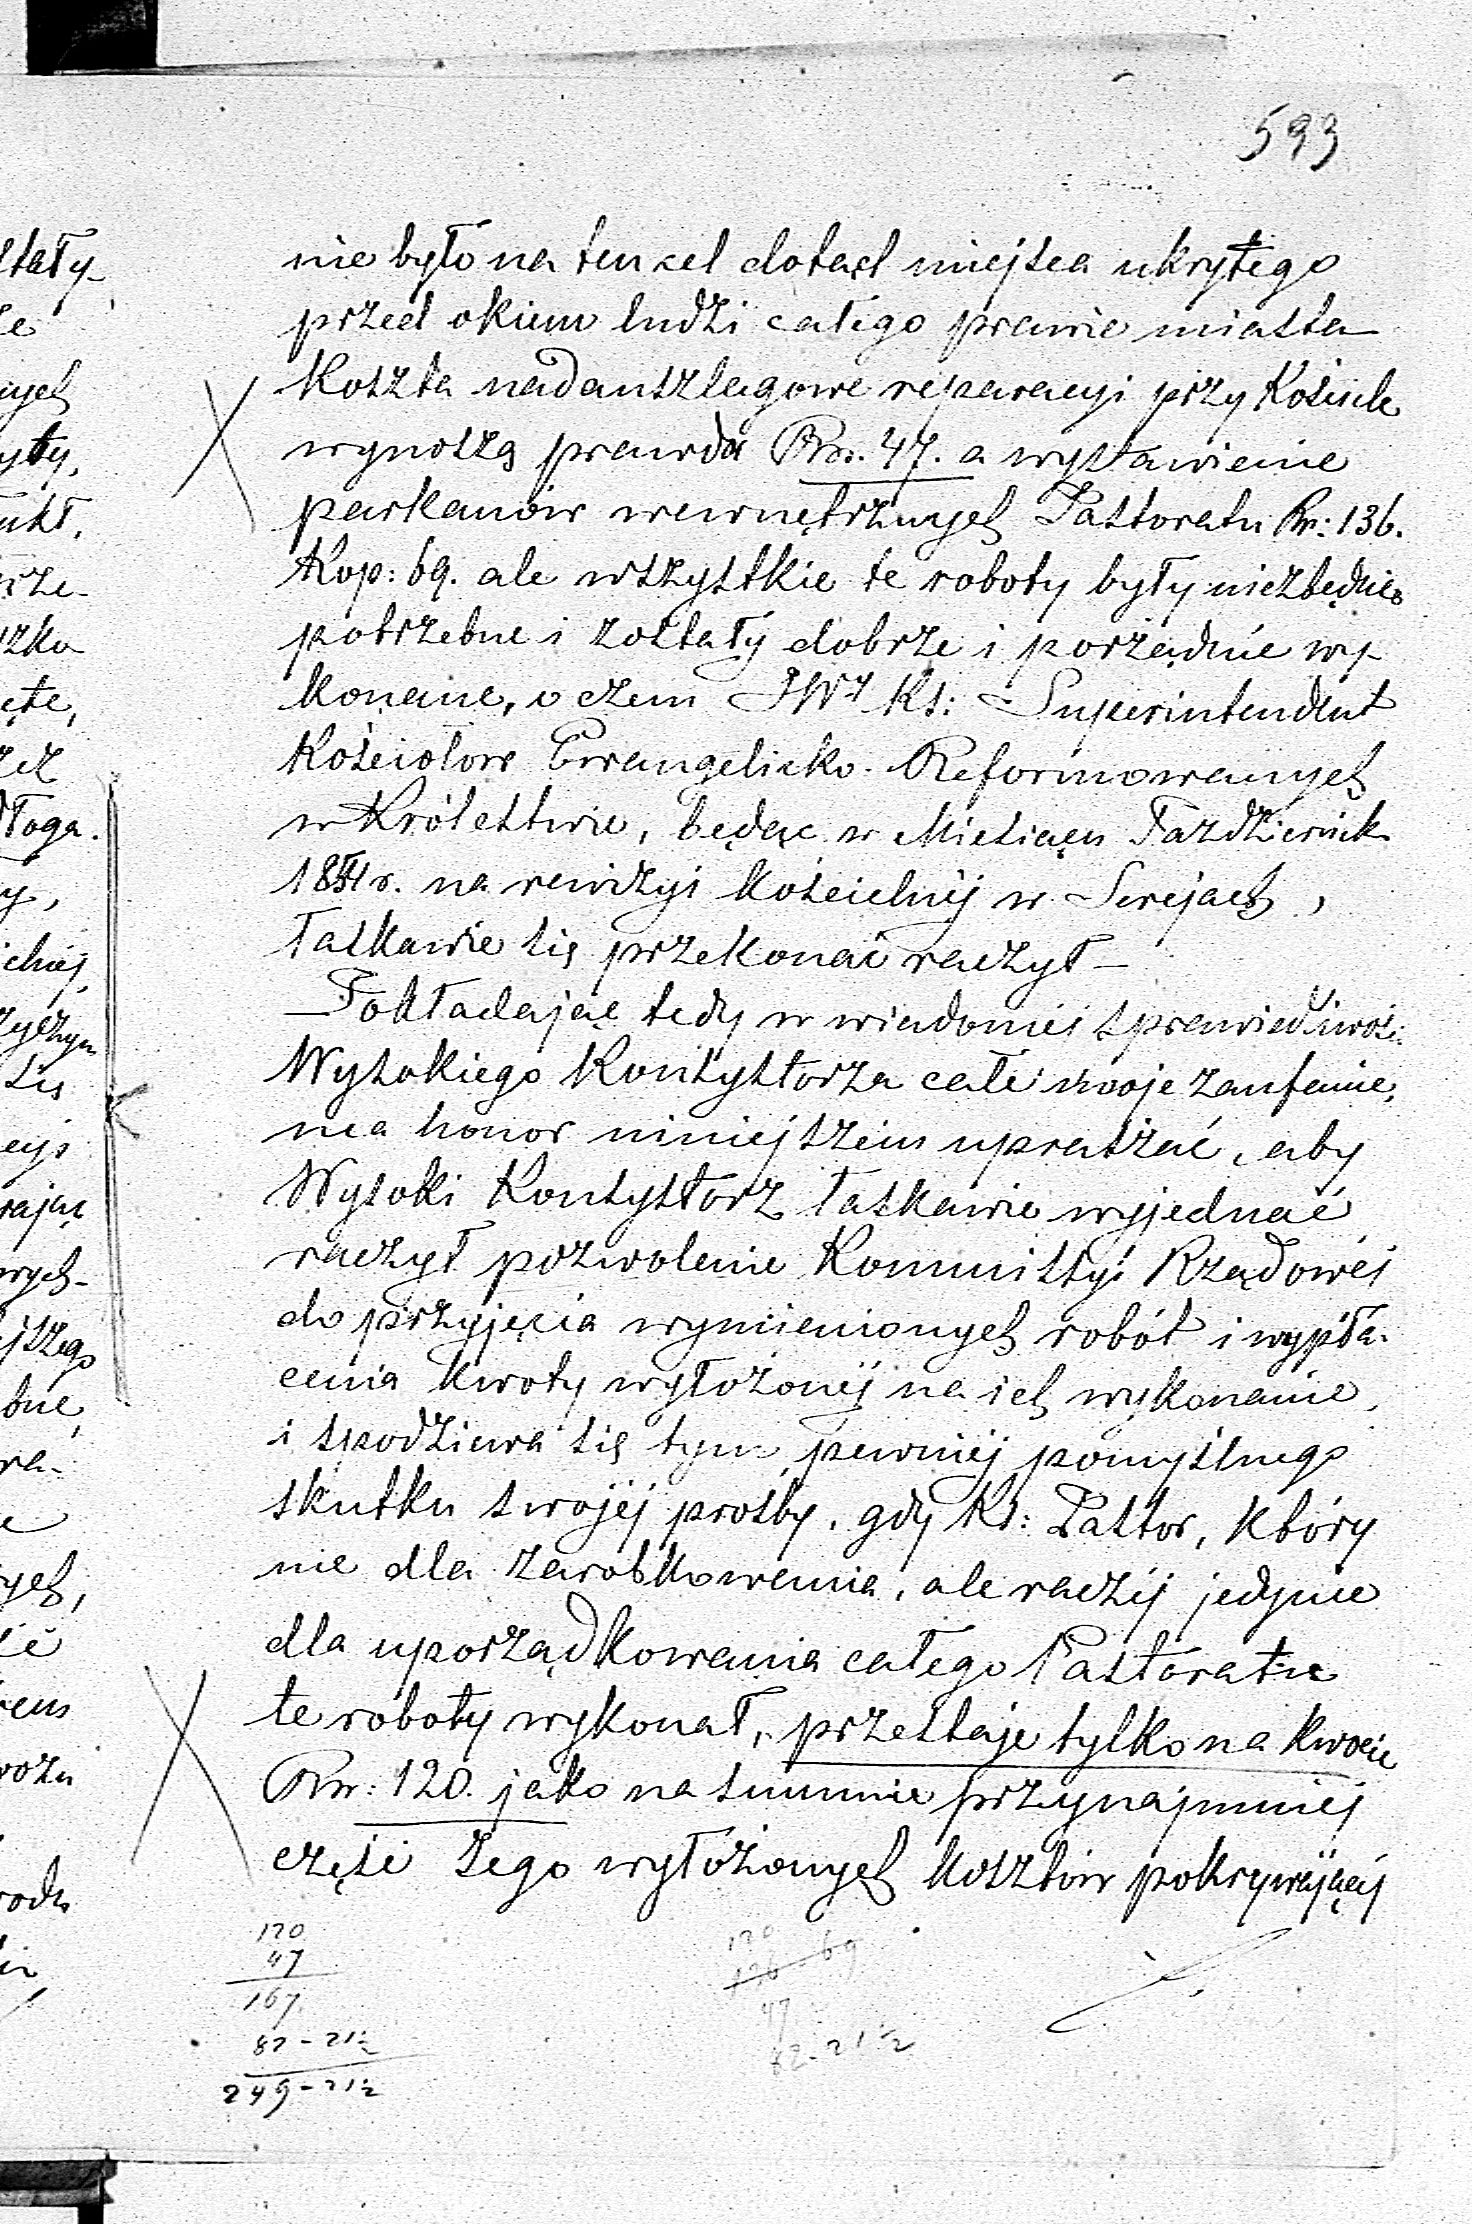 593
nie było na ten cel dotąd miejsca ukrytego
przed okiem ludzi całego prawie miasta
Koszta nadanszlagowe reparacyi przy Kościele
wynoszą prawda Rsr. 47. a wystawienie
parkanów wewnętrznych Pastoratu Rsr: 136.
Kop: 69. ale wszystkie te roboty były niezbędnie
potrzebne i zostały dobrze i porządnie wy-
konane, o czem JWy Ks: Superintendent
Kościołów Ewangelicko-Reformowanych
w Królestwie, będąc w Miesiącu Październik
r. na rewizyi kościelnéj w Serejach,
łaskawie się przekonać raczył —
Pokładając tedy w wiadoméj sprawiedliwości
Wysokiego Konsystorza całe swoje zaufanie,
ma honor niniejszem upraszać, aby
Wysoki Konsystorz łaskawie wyjednać
raczył pozwolenie Kommissyi Rządowéj
do przyjęcia wymienionych robót i wypła-
cenia kwoty wyłożonéj na ich wykonanie,
i spodziewa się tym pewniéj pomyślnego
skutku swojéj prośby, gdy Ks: Pastor, który
nie dla zarobkowania, ale raczéj jedynie
dla uporządkowania całego Pastoratu
te roboty wykonał, przestaje tylko na kwocie
Rsr: 120. jako na summie przynajmniéj
części tego wyłożonych kosztów pokrywającéj
120
47
167
82-21½
249-21½
120
136-69
47
82-21½